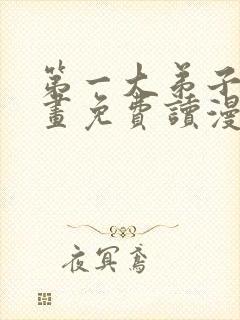 第一大弟子
畫免費讀漫
夜冥鳶